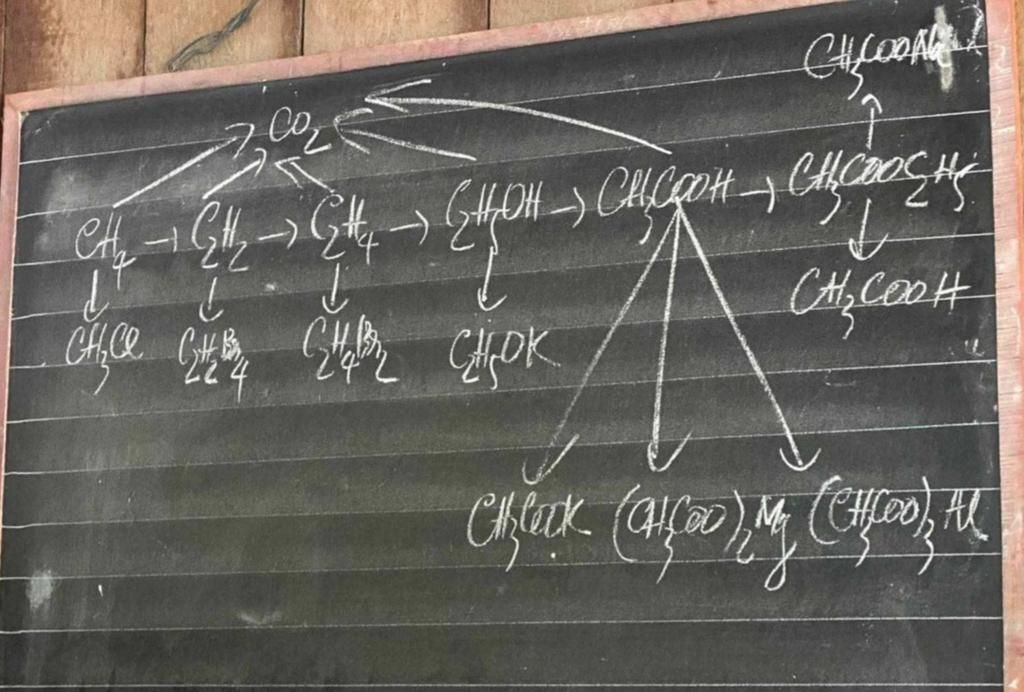 CH3COONa
CO2
CH4 → C2H2 → C2H4 → C2H5OH → CH3COOH → CH3COOC2H5
CH3COOH
CH3Cl C2H2Br4 C2H4Br2 C2H5OK
CH3COOK (CH3COO)2Mg (CH3COO)3Al